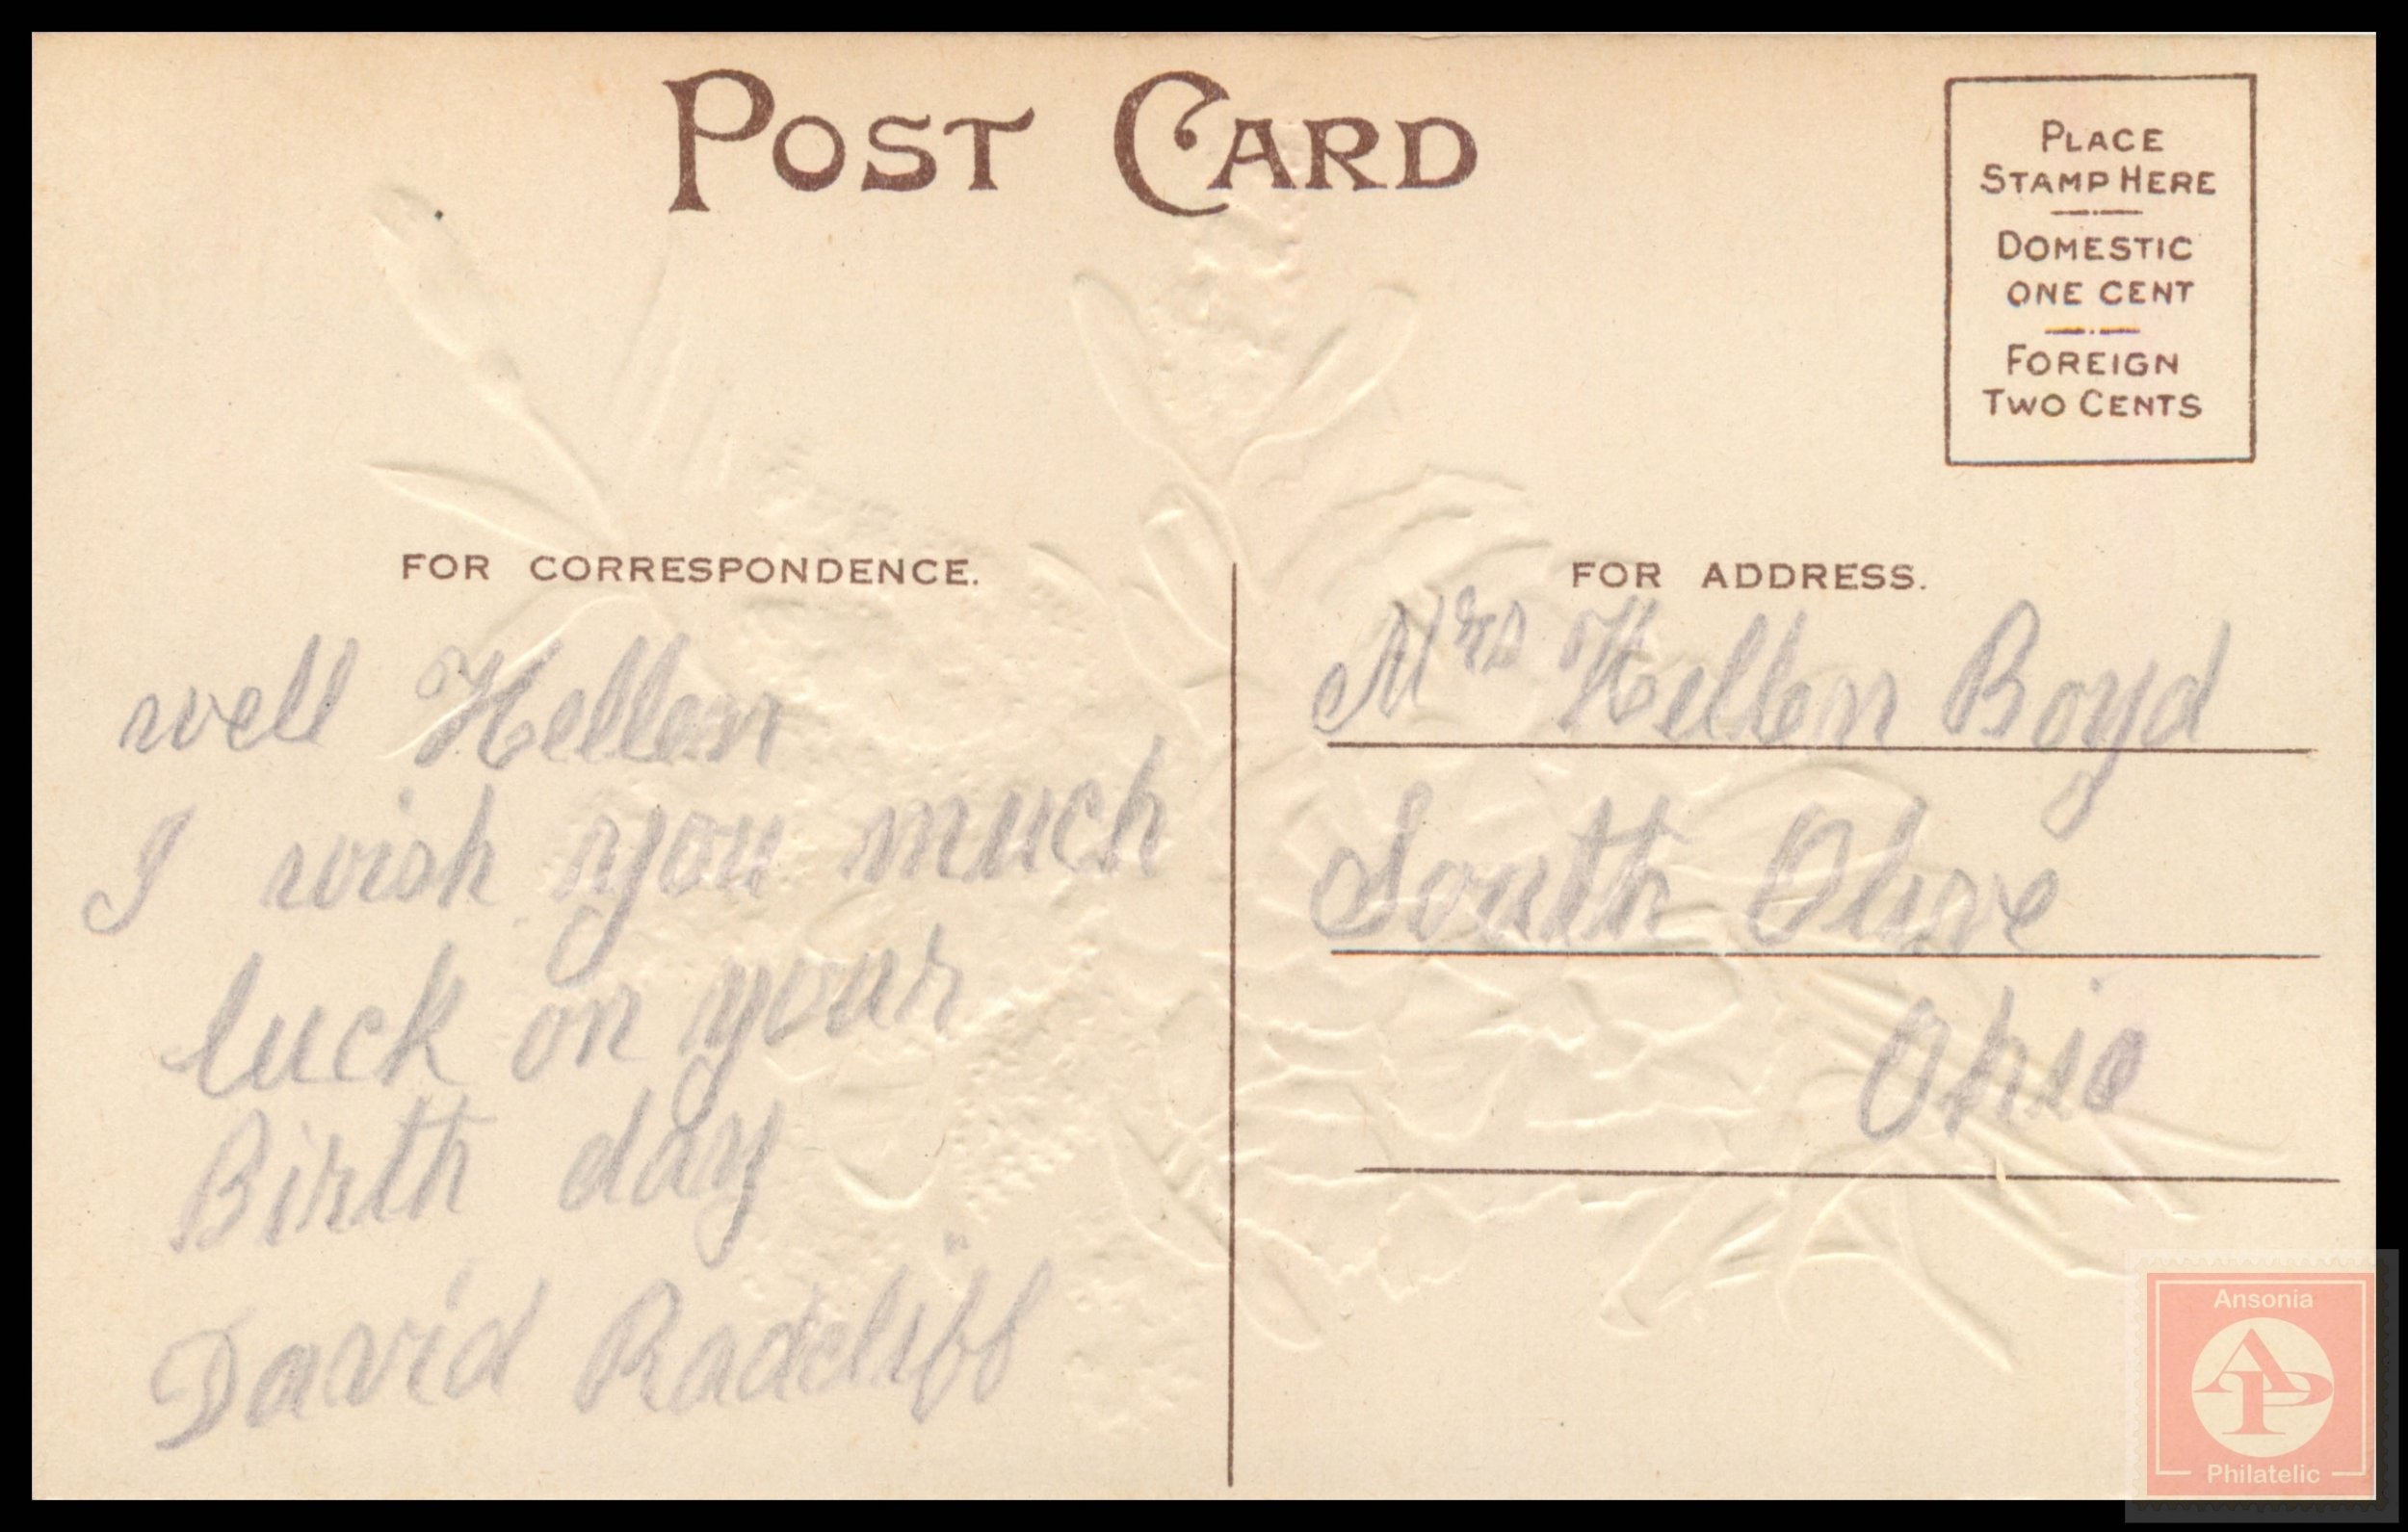 POST CARD
PLACE
STAMP HERE
DOMESTIC
ONE CENT
FOREIGN
TWO CENTS
FOR CORRESPONDENCE.
well Hellen
I wish you much
luck on your
Birth day
David Radcliff
FOR ADDRESS.
Mrs Hellen Boyd
South Olive
Ohio
Ansonia
AP
Philatelic